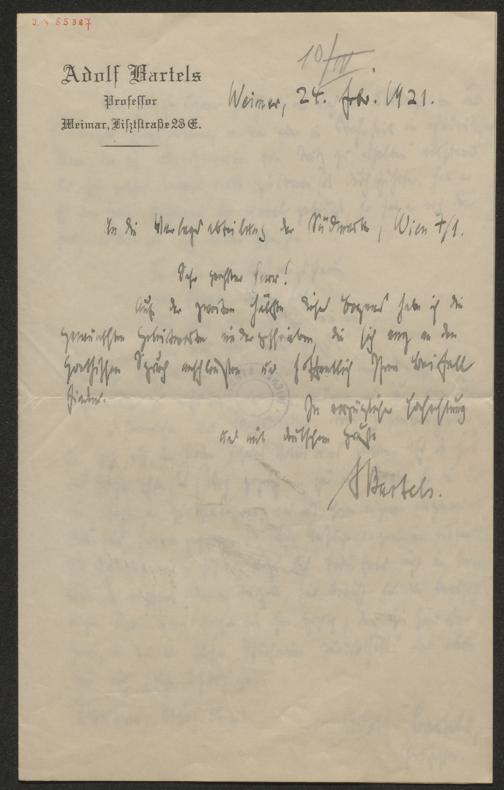 J.N 55367
10/III
Adolf Bartels
Professor
Weimar, Lisztstraße 23 E.
Weimar, 24. Febr. 1921.
An die Verlagsabteilung der Südmark, Wien 7/1.
Sehr geehrter Herr!
Auf der zweiten Hälfte dieses Bogens habe ich die
gewünschten Geleitworte niedergeschrieben, die sich eng an den
Goethischen Spruch anschließen und hoffentlich Ihren Beifall
finden.
In vorzüglicher Hochachtung
und mit deutschem Gruße
ABartels.